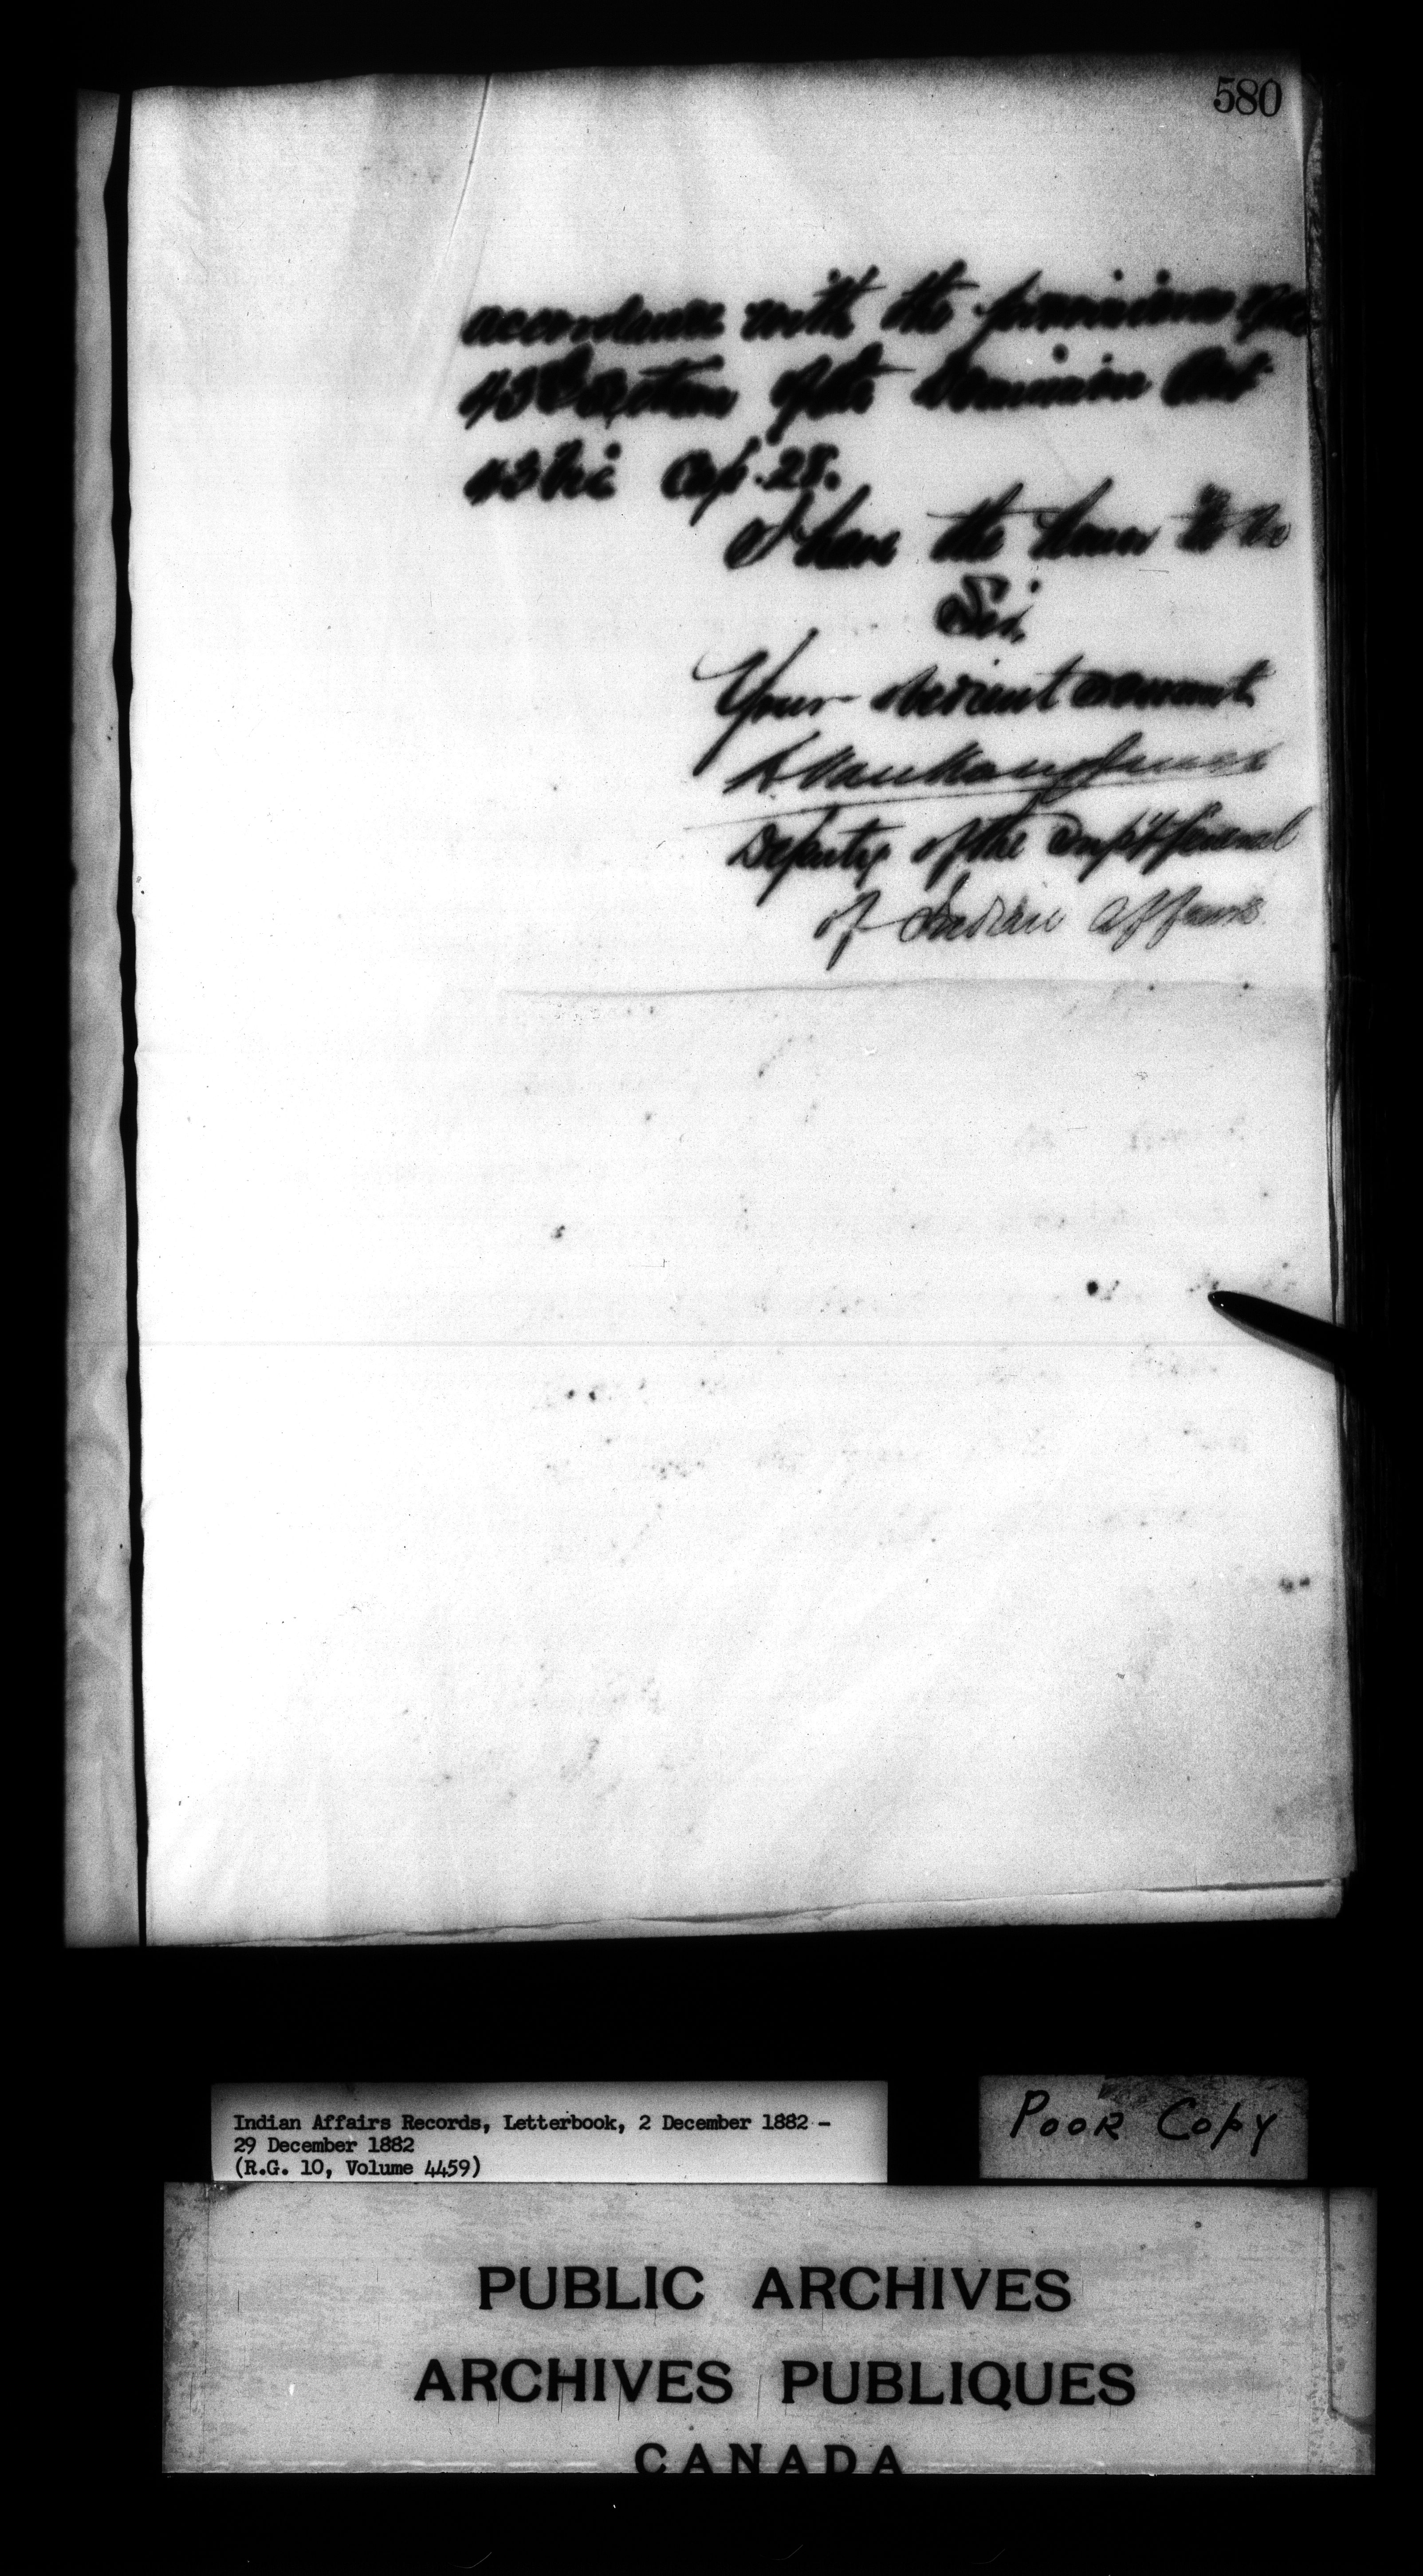 580
accordance with the provisions of the
43rd Section of the Dominion Act
43 Vic Cap. 28.
I have the honor to be
Sir,
Your obedient servant
L Vankoughnet
Deputy of the Supt General
of Indian Affairs
Indian Affairs Records, Letterbook, 2 December 1882 -
29 December 1882
(R.G. 10, Volume 4459)
POOR COPY
PUBLIC ARCHIVES
ARCHIVES PUBLIQUES
CANADA